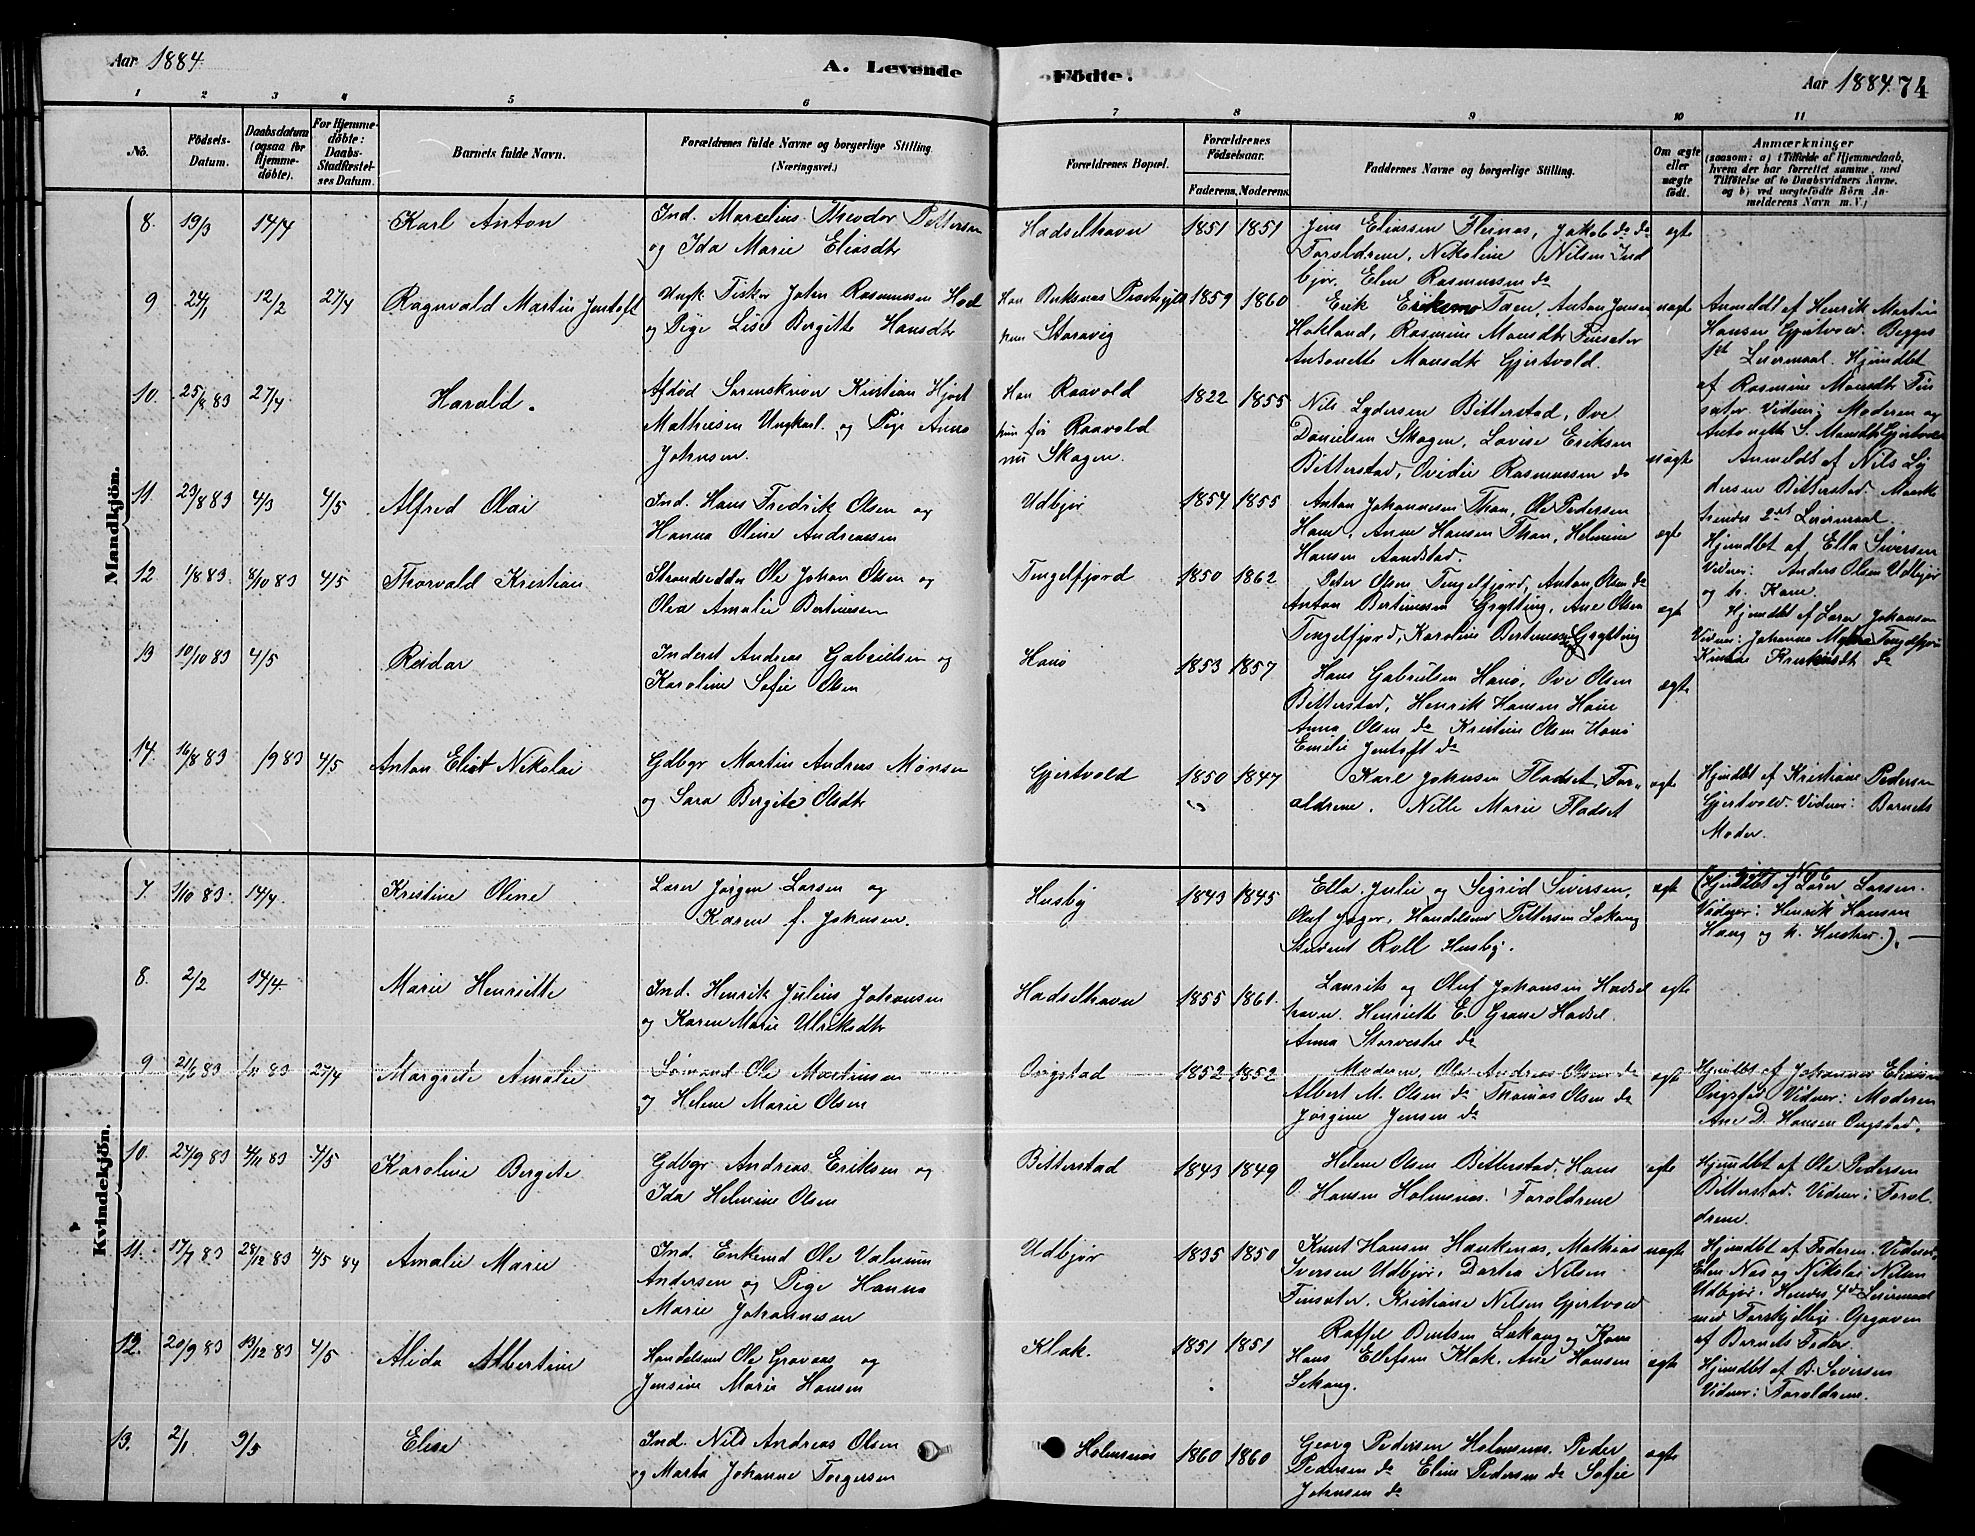 Aar 1884.
A. Levende Födte.
Aar 1884. 74
1 2 3 4 5 6 7 8 9 10 11
No.
Födsels-Datum.
Daabsdatum (ogsaa for Hjemmedöbte).
For Hjemmedöbte: Daabs-Stadfæstelses Datum.
Barnets fulde Navn.
Forældrenes fulde Navne og borgerlige Stilling. (Næringsvei.)
Forældrenes Bopæl.
Forældrenes Födselsaar.
Faderens. Moderens.
Faddernes Navne og borgerlige Stilling.
Om ægte eller uægte födt.
Anmærkninger (saasom: a) i Tilfælde af Hjemmedaab, hvem der har forrettet samme, med Tilföielse af to Daabsvidners Navne, og b) ved uægtefödte Börn Anmelderens Navn m. V.)
Mandkjön.
8. 19/3 14/4 Karl Anton
Ind. Marselius Theodor Pettersen
og Ida Marie Eliasdtr
Hadselhavn 1851 1851
Jens Eliassen Fleines, Jakob do do
Forældrene, Nikoline Nilsen Ind
bjør. Elen Rasmussen do
ægte
9 24/1 12/2 27/4 Ragnvald Martin Jentoft
Ungk. Fisker Johan Rasmussen
og Pige Lise Bergitte Hansdtr
Han Buksnes Præstegjeld
hun Storavig
1859 1860
Erik Eriksen Faen, Anton Jensen
Hokland, Rasmine Monsdtr Finsæter
Antonette Monsdtr Gjertvold.
uægte
Anmeldt af Henrik Martin
Hansen Gjertvold. Begges
1ste Leiermaal. Hjmdbt
af Rasmine Monsdtr Fin
sæter. Vidner: Moderen og
Antonette S. Monsdtr Gjertvold
10. 25/8 83 27/4 Harald.
Afdød Sorenskriver Kristian Hjort
Mathiesen Ungkarl. og Pige Anna
Johnsen.
Han Raavold
hun før Raavold
nu Skagen.
1822 1855
Nils Lydersen Bitterstad, Ove
Danielsen Skagen, Lovise Eriksen
Bitterstad, Ovidie Rasmussen do
uægte
Anmeldt af Nils Ly
dersen Bitterstad.
hendes 2det Leiermaal
11. 23/8 83 4/3 4/5 Alfred Olai
Ind. Hans Fredrik Olsen og
Hanna Oline Andreassen
Udbjør 1854 1855
Anton Johannesen Than, Ole Pedersen
Hane, Anne Hansen Than, Helmine
Hansen Aandstad.
ægte
Hjmdbt af Ella Siversen
Vidner: Anders Olsen Udbjør
og h. Kone.
12 1/8 83 8/10 83 4/5 Thorvald Kristian
Strandsidder Ole Johan Olsen og
Olea Amalie Bertinussen
Tengelfjord 1850 1862
Peter Olsen Tengelfjord, Anton Olsen do
Anton Bertinussen Grytting, Ane Olsen
Tengelfjord, Karoline Bertinussen Grytting
ægte
Hjmdbt af Laver Johansen
Vidner: Johanna Tengelfjord
13 10/10 83 4/5 Reidar
Inderst Andreas Gabrielsen og
Karoline Sofie Olsen
Hanø 1853 1857
Hans Gabrielsen Hanø, Ove Olsen
Bitterstad, Henrik Hansen Hanø
Anna Olsen do Kristine Olsen Hanø
Emilie Jentoft do
ægte
14. 16/8 83 /9 83 4/5 Anton Eliot Nikolai
Gdbgr Martin Andreas Mønsen
og Sara Bergite Olsdtr
Gjertvold 1850 1847
Karl Johnsen Fladset, For-
ældrene. Nille Marie Fladset
ægte
Hjmdbt af Kristiane Pedersen
Gjertvold. Vidner: Barnets
Moder.
Kvindekjön.
7. 1/10 83 14/4 Kristine Oline
Lærer Jørgen Larsen og
Karen f. Johnsen.
Husby 1843 1845
Ella, Julie og Sigrid Siversen,
Oluf Jager, Handelsm Pettersen Lekang
Student Roll Husby.
ægte
(Hjmdbt af Lærer Larsen.
Vidner: Henrik Hansen
Haug og h. Hustru).
8. 2/2 14/4 Marie Henriette
Ind. Henrik Julius Johansen
og Karen Marie Ulriksdtr
Hadselhavn 1855 1861.
Laurits og Oluf Johansen Hadsel
havn. Henriette E. Grane Hadsel.
Anna Storvestre do
ægte
9 21/6 83 /11 83 27/4 Margrete Amalie
Sømand Ole Martinsen
og Helene Marie Olsen
Ongstad 1852 1852
Moderen, Ole Andreas Olsen do
Albert M. Olsen do Thomas Olsen do
Jørgine Jensen do
ægte
Hjmdbt af Johannes Eliasen
Ongstad Vidner: Moderen
Ane D. Hansen Ongstad.
10. 24/9 83 4/11 83 4/5 Karoline Bergete
Gdbgr Andreas Eriksen og
Ida Helmine Olsen
Bitterstad 1843 1849
Helene Olsen Bitterstad, Hans
O. Hansen Holmsnes. Forældrene
ægte
Hjmdbt af Ole Pedersen
Bitterstad. Vidner: Foræl
drene.
11. 17/7 83 28/12 83 4/5 84 Amalie Marie
Ind. Enkemd Ole Valnum
Andersen og Pige Hanna
Marie Johannesen
Udbjør 1835 1850
Knut Hansen Haukenes, Mathias
Iversen Udbjør, Dortea Nilsen
Finsæter, Kristiane Nilsen Gjertvold
uægte
Hjmdbt af Federen. Vidner:
Elen Næs og Nikolai Nilsen
Udbjør. Hendes 4de Leiermaal
med Forskjellige. Opgaven
af Barnets Fader.
12. 20/9 83 13/12 83 4/5 Alida Albertine
Handelsmd Ole Gravaas og
Jensine Marie Hansen
Klak. 1851 1851
Roffel Bentsen Lekang og Kone
Hans Ellefsen Klak, Ane Hansen
Lekang.
ægte
Hjmdbt af B. Siversen
Vidner: Forældrene.
13. 2/1 9/5 Elise
Ind. Nils Andreas Olsen
og Marta Johanne Torgersen
Holmsnes 1860 1860
Georg Pedersen Holmsnes. Peder
Pedersen do Eline Pedersen do Sofie
Johnsen do
ægte